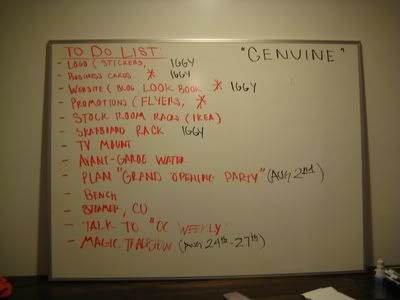 TO DO LIST:
"GENUINE"
- LOGO (STICKERS, IGGY
- BUSINESS CARDS * IGGY
- WEBSITE (BLOG LOOK BOOK * IGGY
- PROMOTIONS (FLYERS, *
- STOCK ROOM RACKS (IKEA)
- SKATEBOARD RACK IGGY
- TV MOUNT
- AVANT-GARDE WATER
- PLAN "GRAND OPENING PARTY" (AUG 2nd)
- BENCH
- STEAMER, CU
- TALK TO "OC WEEKLY
- MAGIC TRADESHOW (AUG 24th-27th)